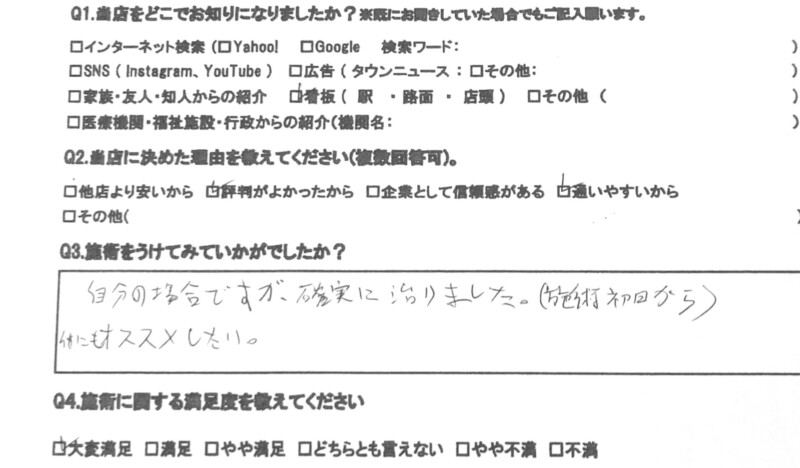 Q1.当店をどこでお知りになりましたか？※既にお聞きしていた場合でもご記入願います。
□インターネット検索（□Yahoo! □Google 検索ワード： ）
□SNS（Instagram、YouTube） □広告（タウンニュース：□その他： ）
□家族・友人・知人からの紹介 ☑看板（駅 ・路面 ・ 店頭） □その他（ ）
□医療機関・福祉施設・行政からの紹介（機関名： ）
Q2.当店に決めた理由を教えてください（複数回答可）。
□他店より安いから ☑評判がよかったから □企業として信頼感がある ☑通いやすいから
□その他（ ）
Q3.施術をうけてみていかがでしたか？
自分の場合ですが、確実に治りました。（施術初回から）
他にもオススメしたい。
Q4.施術に関する満足度を教えてください
☑大変満足 □満足 □やや満足 □どちらとも言えない □やや不満 □不満